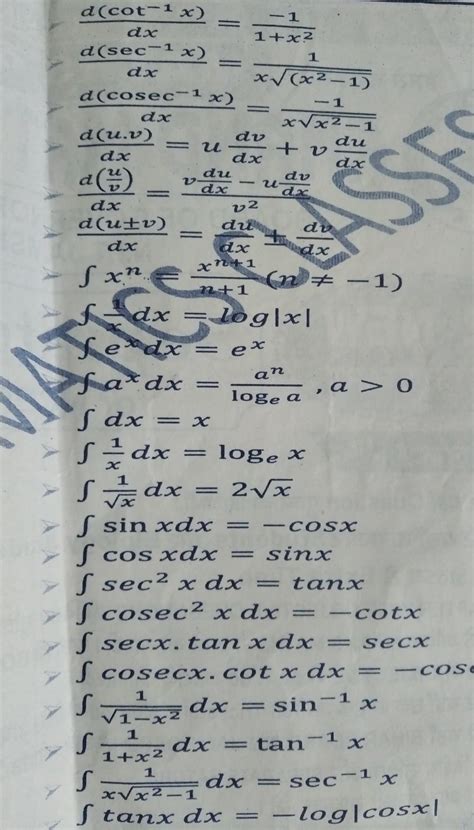 d(cot⁻¹ x)/dx = -1/(1+x²)
d(sec⁻¹ x)/dx = 1/(x√(x²-1))
d(cosec⁻¹ x)/dx = -1/(x√x²-1)
d(u.v)/dx = u dv/dx + v du/dx
d(u/v)/dx = (v du/dx - u dv/dx)/v²
d(u±v)/dx = du/dx ± dv/dx
∫ xⁿ = xⁿ⁺¹/(n+1) (n ≠ -1)
∫ 1/x dx = log|x|
∫ eˣdx = eˣ
∫ aˣdx = aⁿ/logₑ a , a > 0
∫ dx = x
∫ 1/x dx = logₑ x
∫ 1/√x dx = 2√x
∫ sin xdx = -cosx
∫ cos xdx = sinx
∫ sec² x dx = tanx
∫ cosec² x dx = -cotx
∫ secx. tan x dx = secx
∫ cosecx. cot x dx = -cose
∫ 1/√(1-x²) dx = sin⁻¹ x
∫ 1/(1+x²) dx = tan⁻¹ x
∫ 1/(x√(x²-1)) dx = sec⁻¹ x
∫ tanx dx = -log|cosx|
MATICS CLASSES